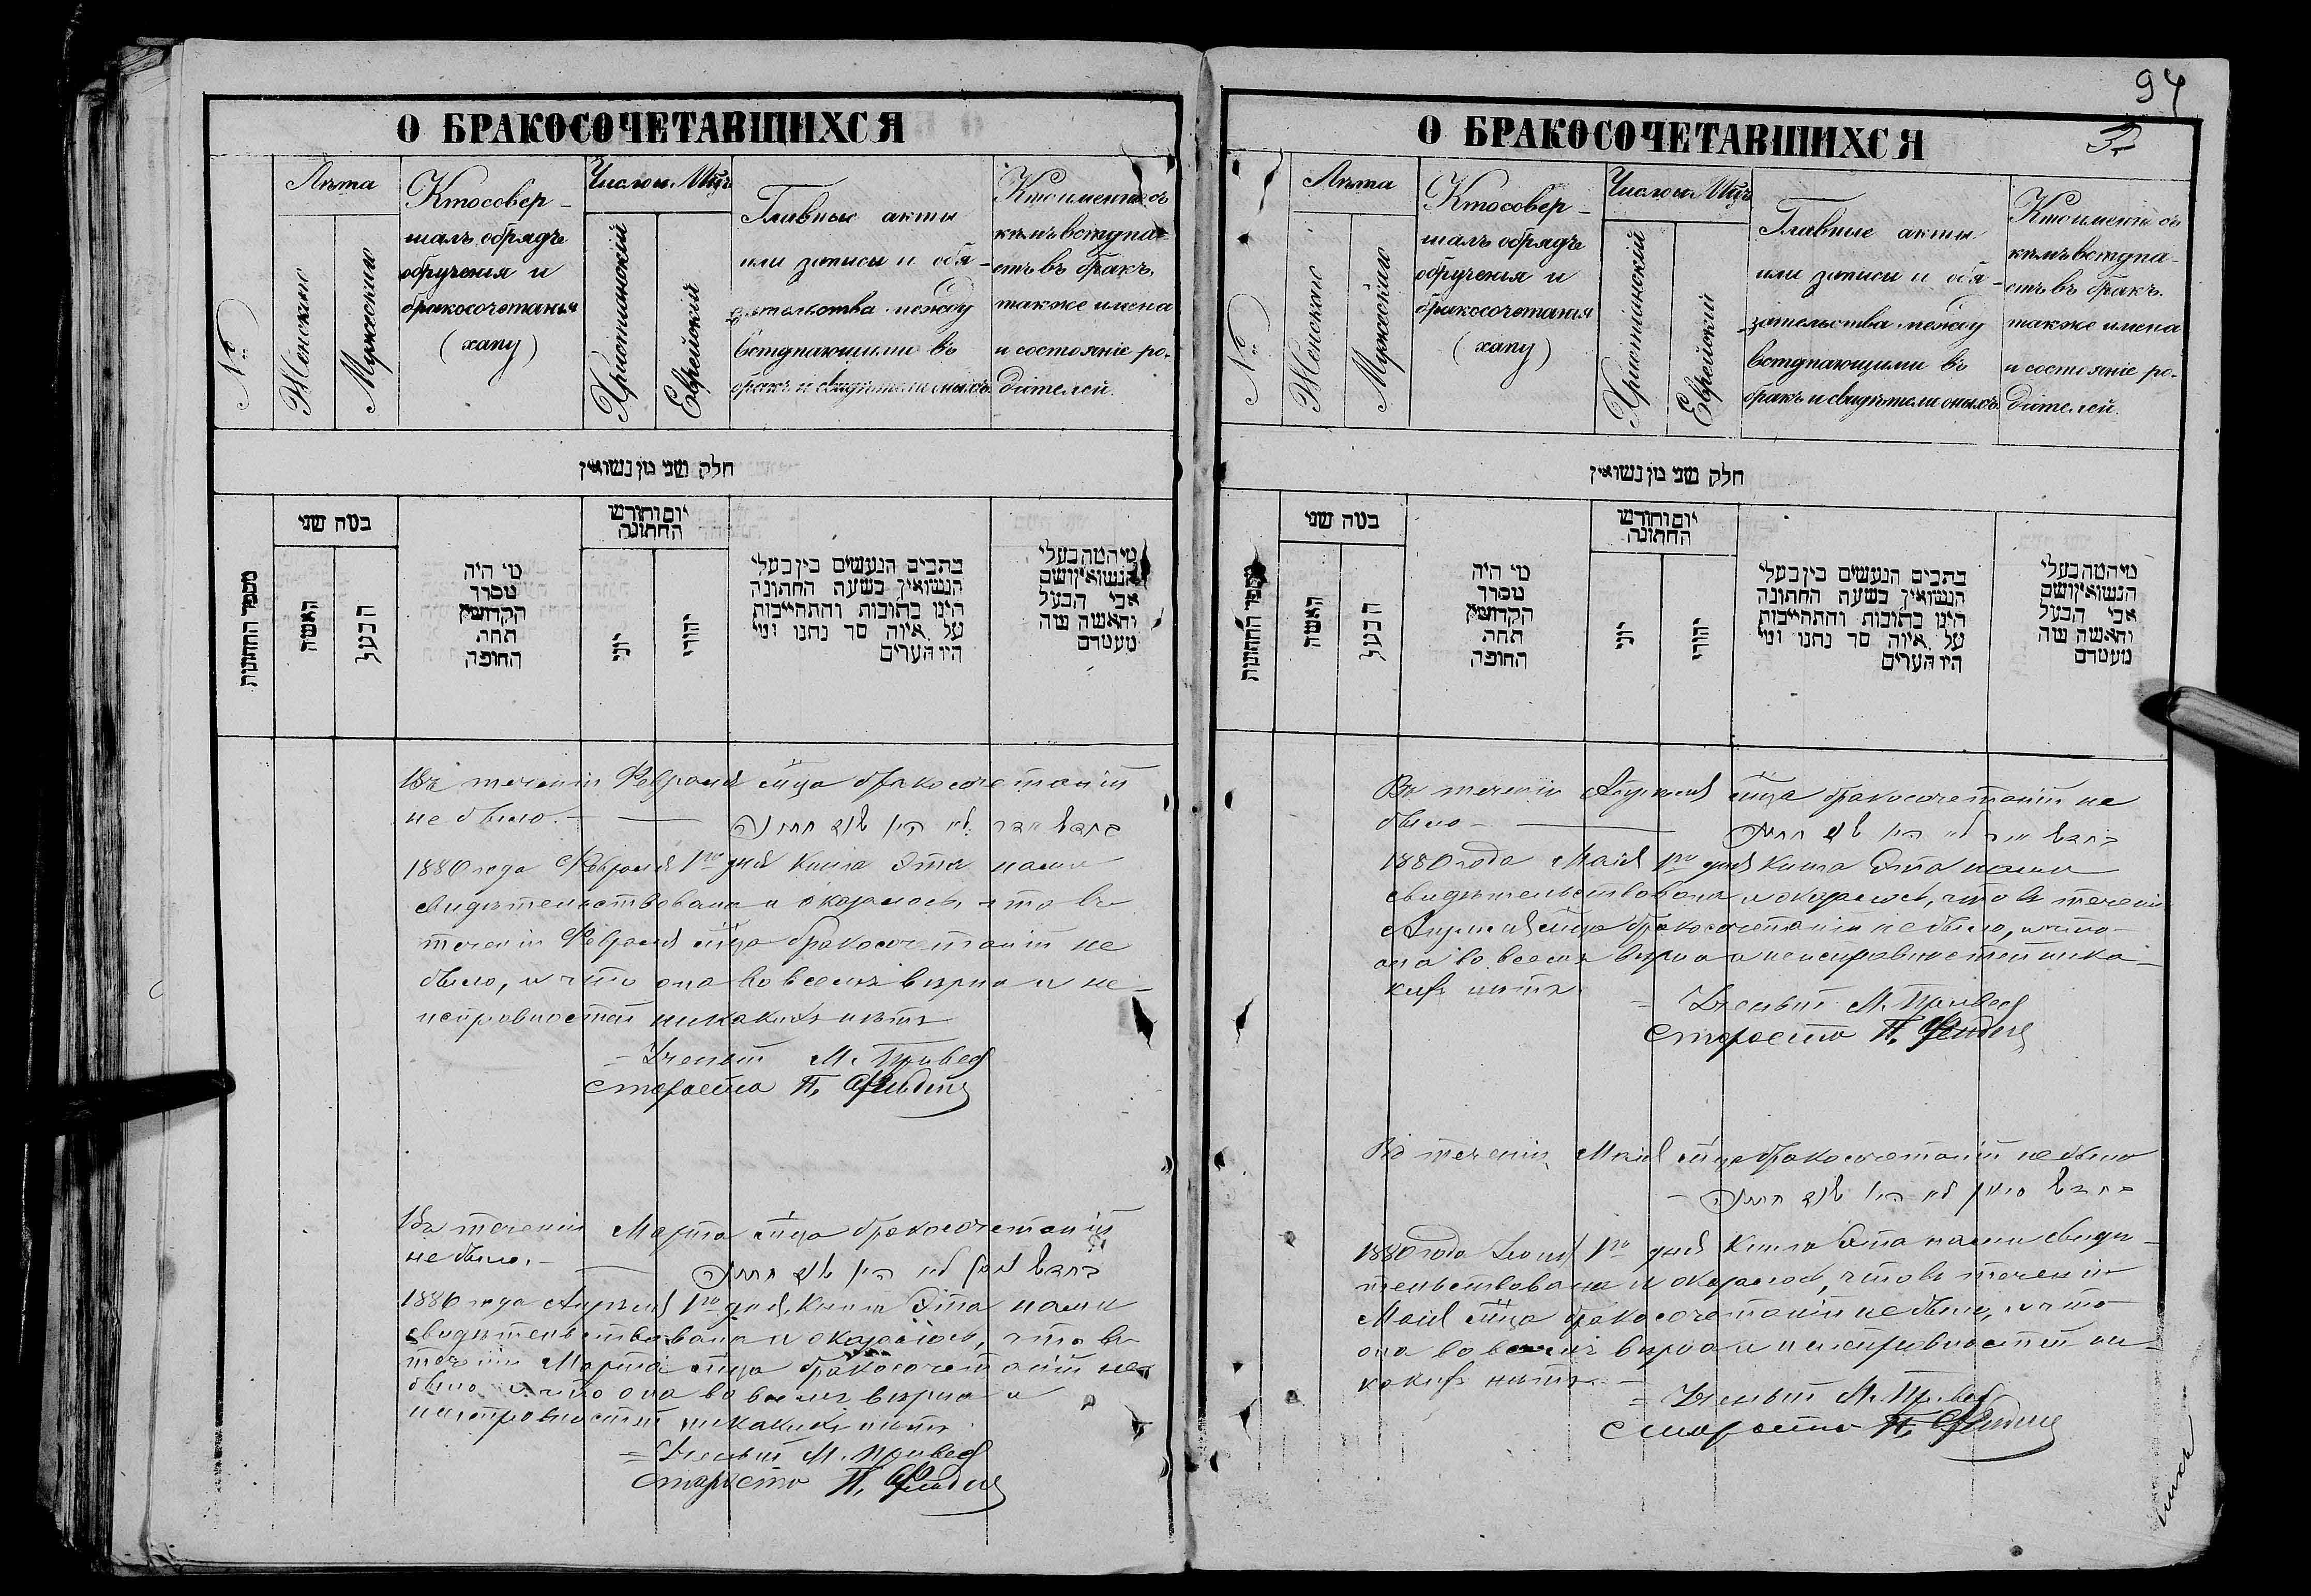 О БРАКОСОЧЕТАВШИХСЯ
№
Лѣта
Женскаго
Мужескаго
Кто совер-
шалъ обрядъ
обрученія и
бракосочетанія
(хапу)
Число и Мцъ
Христіанскій
Еврейскій
Главные акты
или записи и обя-
зательства между
вступающими въ
бракъ и свидѣтели оныхъ.
Кто именно съ
кѣмъ вступа-
етъ въ бракъ.
также имена
и состояніе ро-
дителей.
חלק שני מן נשואין
מספר החתונות
במה שני
האשה
הבעל
מי היה
מסדר
הקדושין
תחת
החופה
יום וחודש
החתונה
יוני
יהודי
כתבים הנעשים בין בעלי
הנשואין בשעת החתונה
הינו כתובות והתחייבות
על איזה סך נתנו ומי
היו העדים
מי המה בעלי
הנשואין ושם
אבי הבעל
והאשה מה
מעמדם
Въ теченіи Февраля м-ца бракосочетаній
не было. —
בחדש אדר לא היו שום חתונה
1880 года Февраля 1го дня книга эта нами
свидѣтельствована и оказалось, что въ
теченіи Февраля м-ца бракосочетаній не
было, и что она во всемъ вѣрна и не-
исправностей никакихъ нѣтъ
Ученый М.
Староста П.
Въ теченіи Марта м-ца бракосочетаній
не было. —
בחדש ניסן לא היו שום חתונה
1880 года Апрѣля 1го дня книга эта нами
свидѣтельствована и оказалось, что въ
теченіи Марта м-ца бракосочетаній не
было и что она во всемъ вѣрна и
неисправностей никакихъ нѣтъ
Ученый М.
Староста П.
94
О БРАКОСОЧЕТАВШИХСЯ
№
Лѣта
Женскаго
Мужескаго
Кто совер-
шалъ обрядъ
обрученія и
бракосочетанія
(хапу)
Число и Мцъ
Христіанскій
Еврейскій
Главные акты
или записи и обя-
зательства между
вступающими въ
бракъ и свидѣтели оныхъ.
Кто именно съ
кѣмъ вступа-
етъ въ бракъ.
также имена
и состояніе ро-
дителей.
חלק שני מן נשואין
מספר החתונות
במה שני
האשה
הבעל
מי היה
מסדר
הקדושין
תחת
החופה
יום וחודש
החתונה
יוני
יהודי
כתבים הנעשים בין בעלי
הנשואין בשעת החתונה
הינו כתובות והתחייבות
על איזה סך נתנו ומי
היו העדים
מי המה בעלי
הנשואין ושם
אבי הבעל
והאשה מה
מעמדם
Въ теченіи Апрѣля м-ца бракосочетаній не
было —
בחדש אייר לא היו שום חתונה
1880 года Мая 1го дня книга эта нами
свидѣтельствована и оказалось, что въ теченіи
Апрѣля м-ца бракосочетаній не было, и что
она во всемъ вѣрна и неисправностей ника-
кихъ нѣтъ.
Ученый М.
Староста П.
Въ теченіи Мая м-ца бракосочетаній не было
בחדש סיון לא היו שום חתונה —
1880 года Іюня 1го дня книга эта нами свидѣ-
тельствована и оказалось, что въ теченіи
Мая м-ца бракосочетаній не было, и что
она во всемъ вѣрна и неисправностей ни-
какихъ нѣтъ. —
Ученый М.
Староста П.